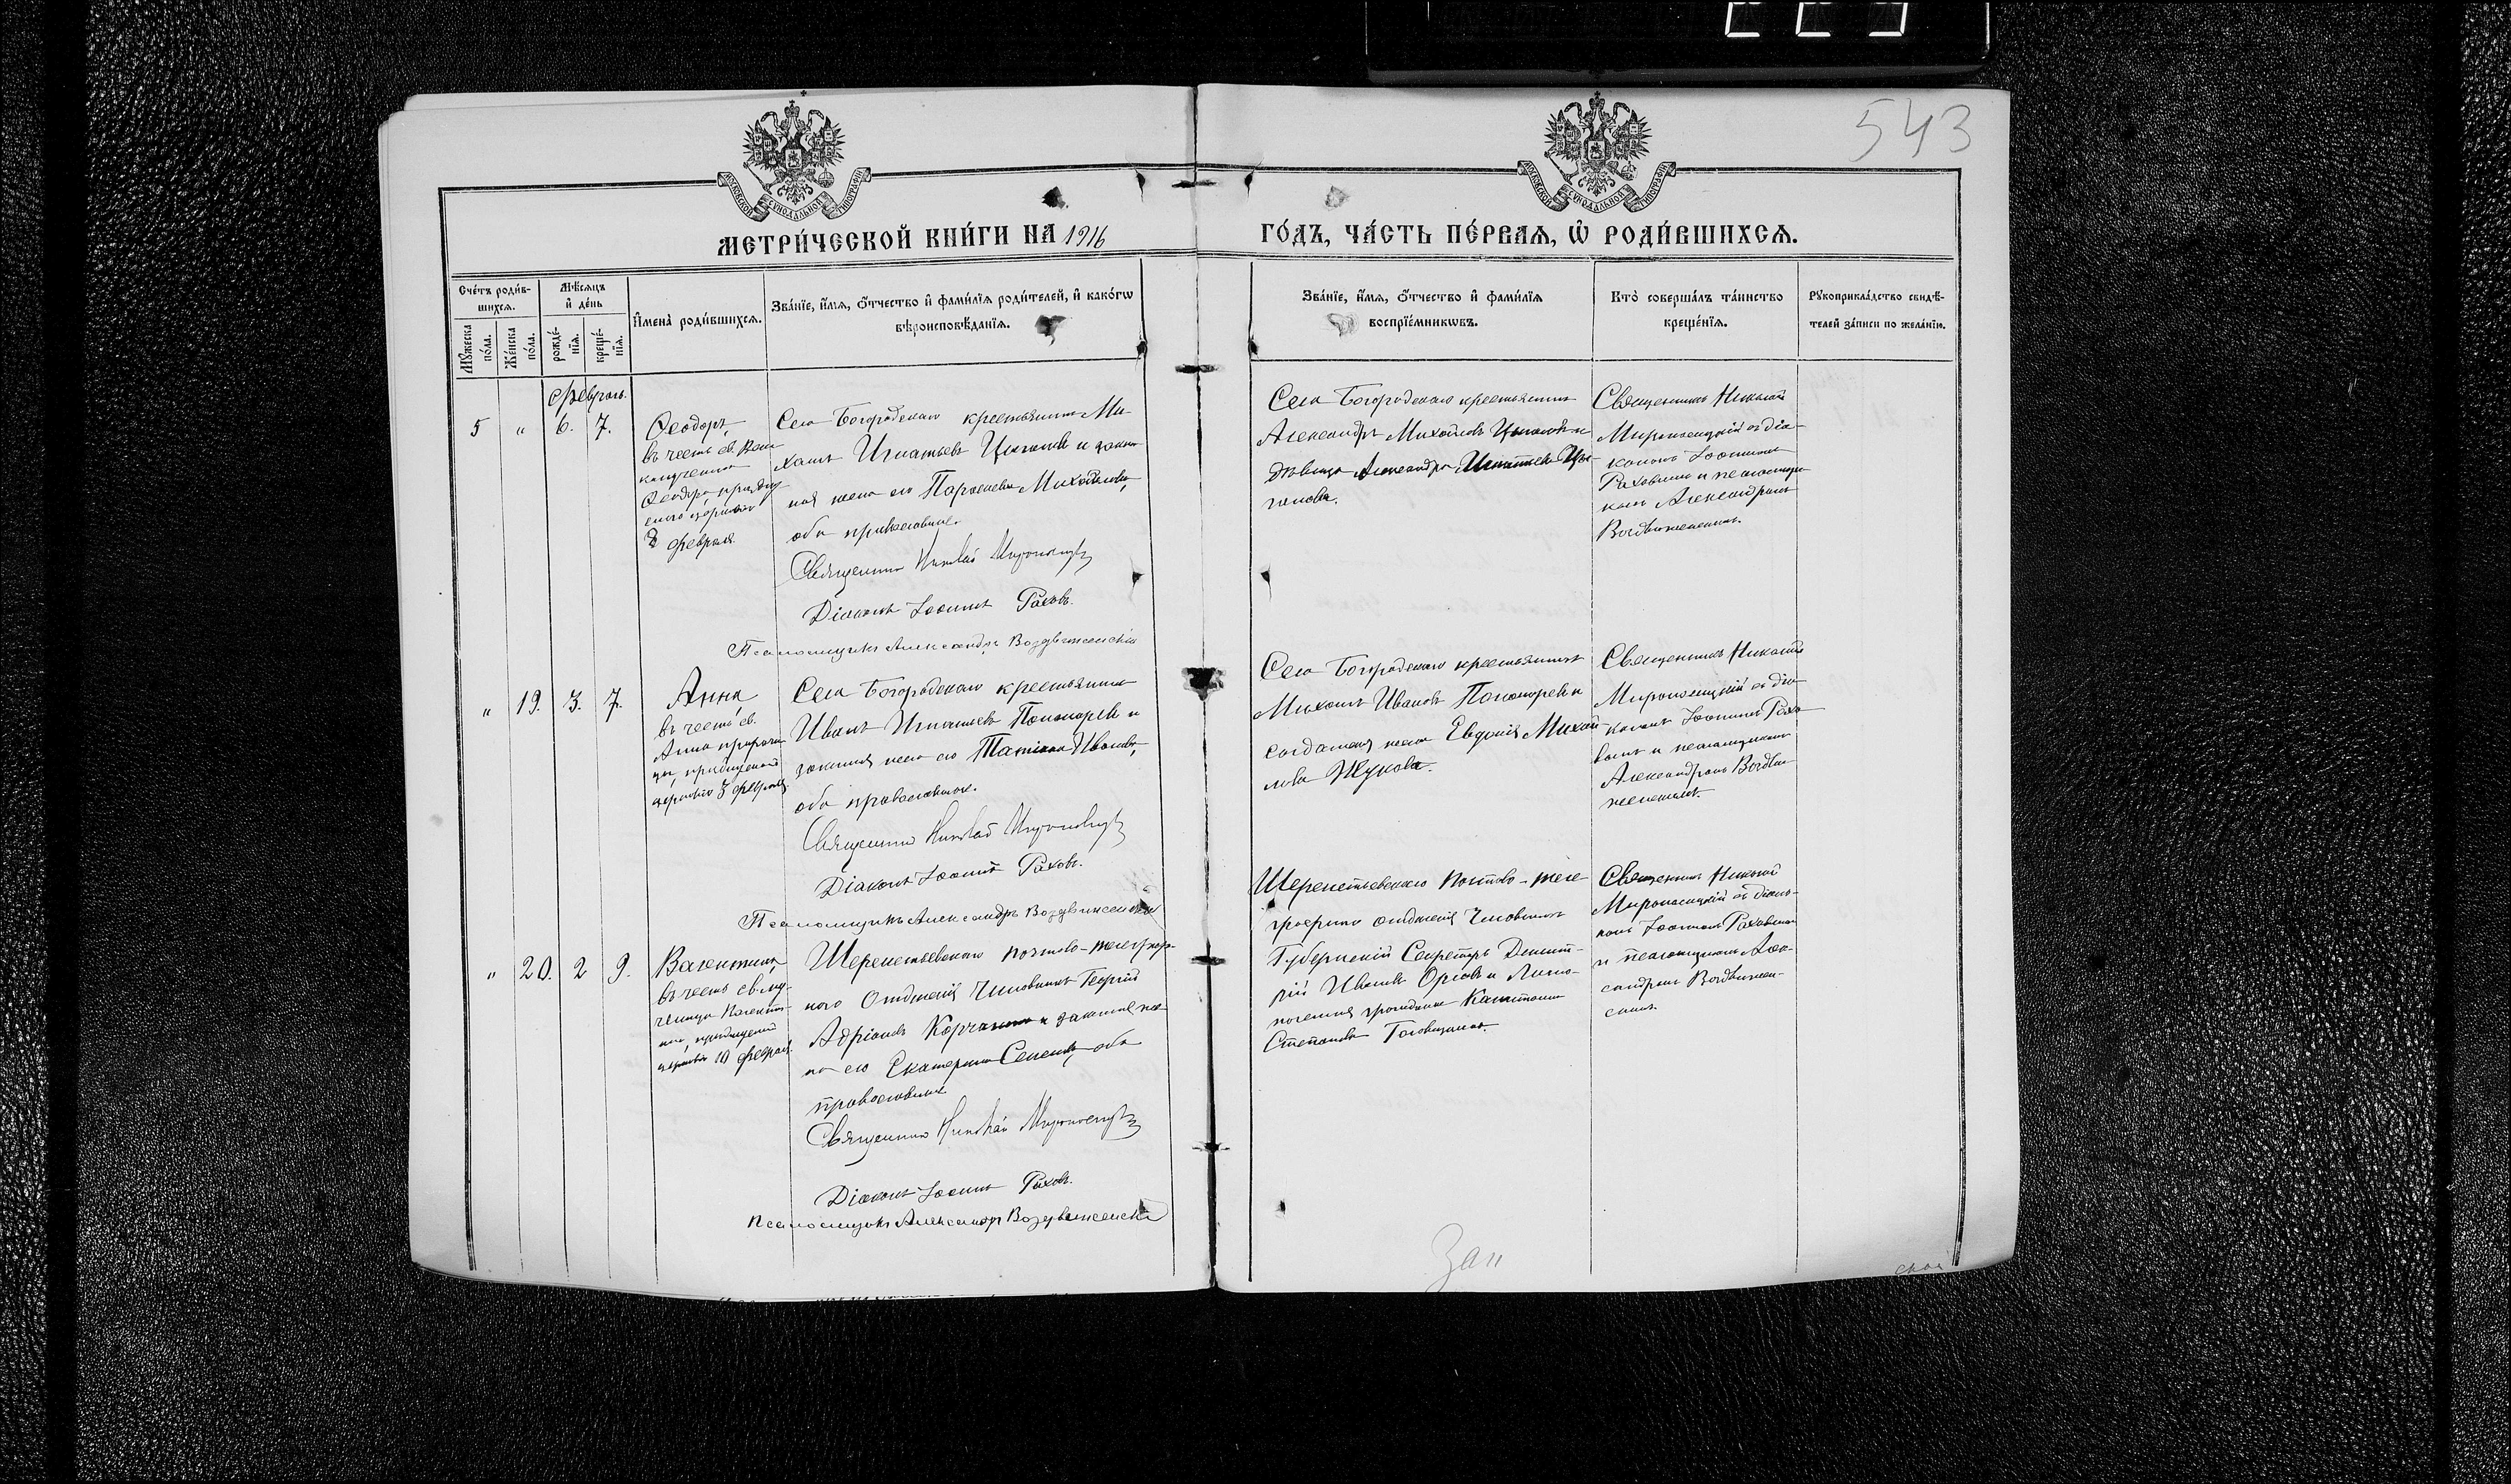 543
МОСКОВСКОЙ СѴНОДАЛЬНОЙ ТИПОГРАФІИ
МОСКОВСКОЙ СѴНОДАЛЬНОЙ ТИПОГРАФІИ
МЕТРИ́ЧЕСКОЙ КНИ́ГИ НА 1916
ГО́ДЪ, ЧА́СТЬ ПЕ́РВАѦ, Ѡ҆ РОДИ́ВШИХСѦ.
Сче́тъ роди́в-
шихсѧ.
Мꙋ́жеска
по́ла.
Же́нска
по́ла.
Мѣ́сѧцъ
и҆ де́нь
рожде́-
нїѧ.
креще́-
нїѧ.
И҆мена̀ роди́вшихсѧ.
Зва́нїе, и҆́мѧ, ѻ҆́тчество и҆ фами́лїѧ роди́телей, и҆ како́гѡ
вѣроисповѣ́данїѧ.
Зва́нїе, и҆́мѧ, ѻ҆́тчество и҆ фами́лїѧ
воспрїе́мникѡвъ.
Кто̀ соверша́лъ та́инство
креще́нїѧ.
Рꙋкоприкла́дство свидѣ́-
телей за́писи по жела́нїю.
Февраль.
5 " 6. 7.
Ѳеодоръ,
въ честь св. Вели
комученика
Ѳеодора, праздну
емаго церковію
8 февраля.
Села Богородскаго крестьянинъ Ми-
хаилъ Игнатьевъ Цыгановъ и закон
ная жена его Параскева Михайлова,
оба православные.
Священникъ Николай Мироносицкій
Діаконъ Іоаннъ Раховъ.
Псаломщикъ Александръ Воздвиженскій
Села Богородскаго крестьянинъ
Александръ Михайловъ Цыгановъ и
дѣвица Александра Игнатьева Цы-
ганова.
Священникъ Николай
Мироносицкій съ діа-
кономъ Іоанномъ
Раховымъ и псаломщи
комъ Александромъ
Воздвиженскимъ.
" 19. 3. 7.
Анна
въ честь св.
Анны пророчи
цы, празднуемой
церковію 3 февраля.
Села Богородскаго крестьянинъ
Иванъ Игнатьевъ Пономаревъ и
законная жена его Татіана Иванова,
оба православные.
Священникъ Николай Мироносицкій
Діаконъ Іоаннъ Раховъ.
Псаломщикъ Александръ Воздвиженскій
Села Богородскаго крестьянинъ
Михаилъ Ивановъ Пономаревъ и
солдатская жена Евдокія Михай-
лова Жукова.
Священникъ Николай
Мироносицкій съ діа
кономъ Іоанномъ Рахо
вымъ и псаломщикомъ
Александромъ Воздви
женскимъ.
" 20. 2 9.
Валентина,
въ честь св. му-
ченицы Валенти-
ны, празднуемой
церковію 10 февраля.
Шереметьевскаго почтово-телеграф-
наго отдѣленія чиновникъ Георгій
Адріановъ и законная же-
на его Екатерина Семенова, оба
православные
Священникъ Николай Мироносицкій
Діаконъ Іоаннъ Раховъ.
Псаломщикъ Александръ Воздвиженскій
Шереметьевскаго почтово-теле
графнаго отдѣленія чиновникъ
Губернскій Секретарь Димит-
рій Ивановъ Орловъ и
гражданка Капитолина
Степанова
Священникъ Николай
Мироносицкій съ діако-
номъ Іоанномъ Раховымъ
и псаломщикомъ Алек-
сандромъ Воздвижен-
скимъ.
Зап